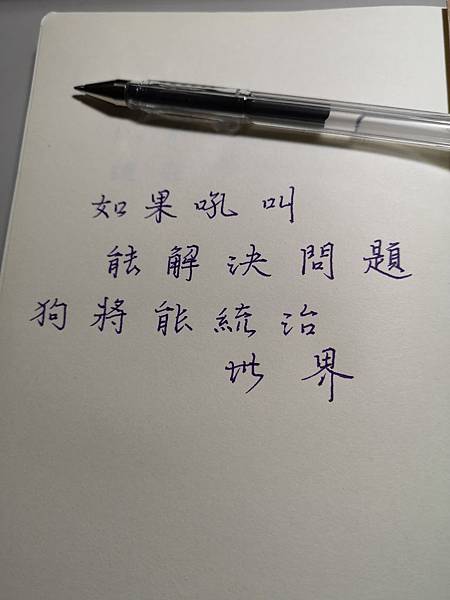 如果吼叫
能解決問題
狗將能統治
世界